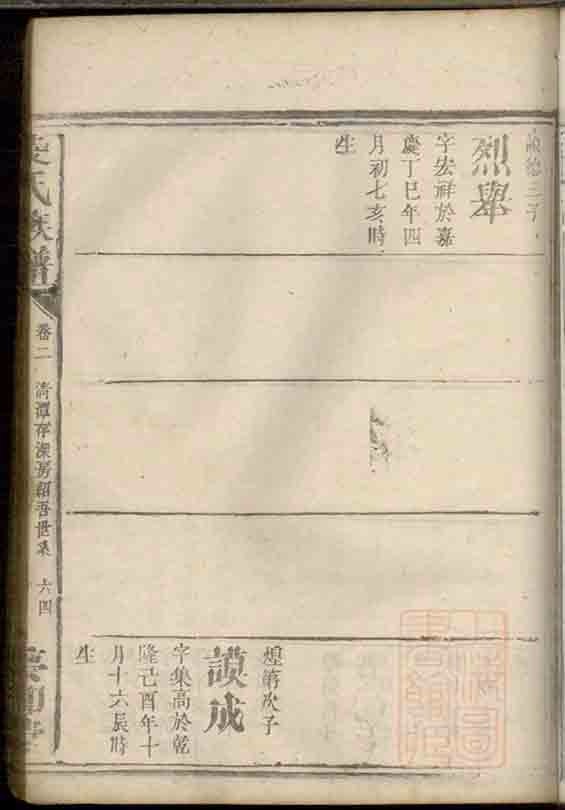 謨總三子
烈舉
字宏祥於嘉
慶丁巳年四
月初七亥時
生
煌第次子
謨成
字集高於乾
隆己酉年十
月十六辰時
生
氏族譜
卷二
清潭存深房韶吾世系
六四